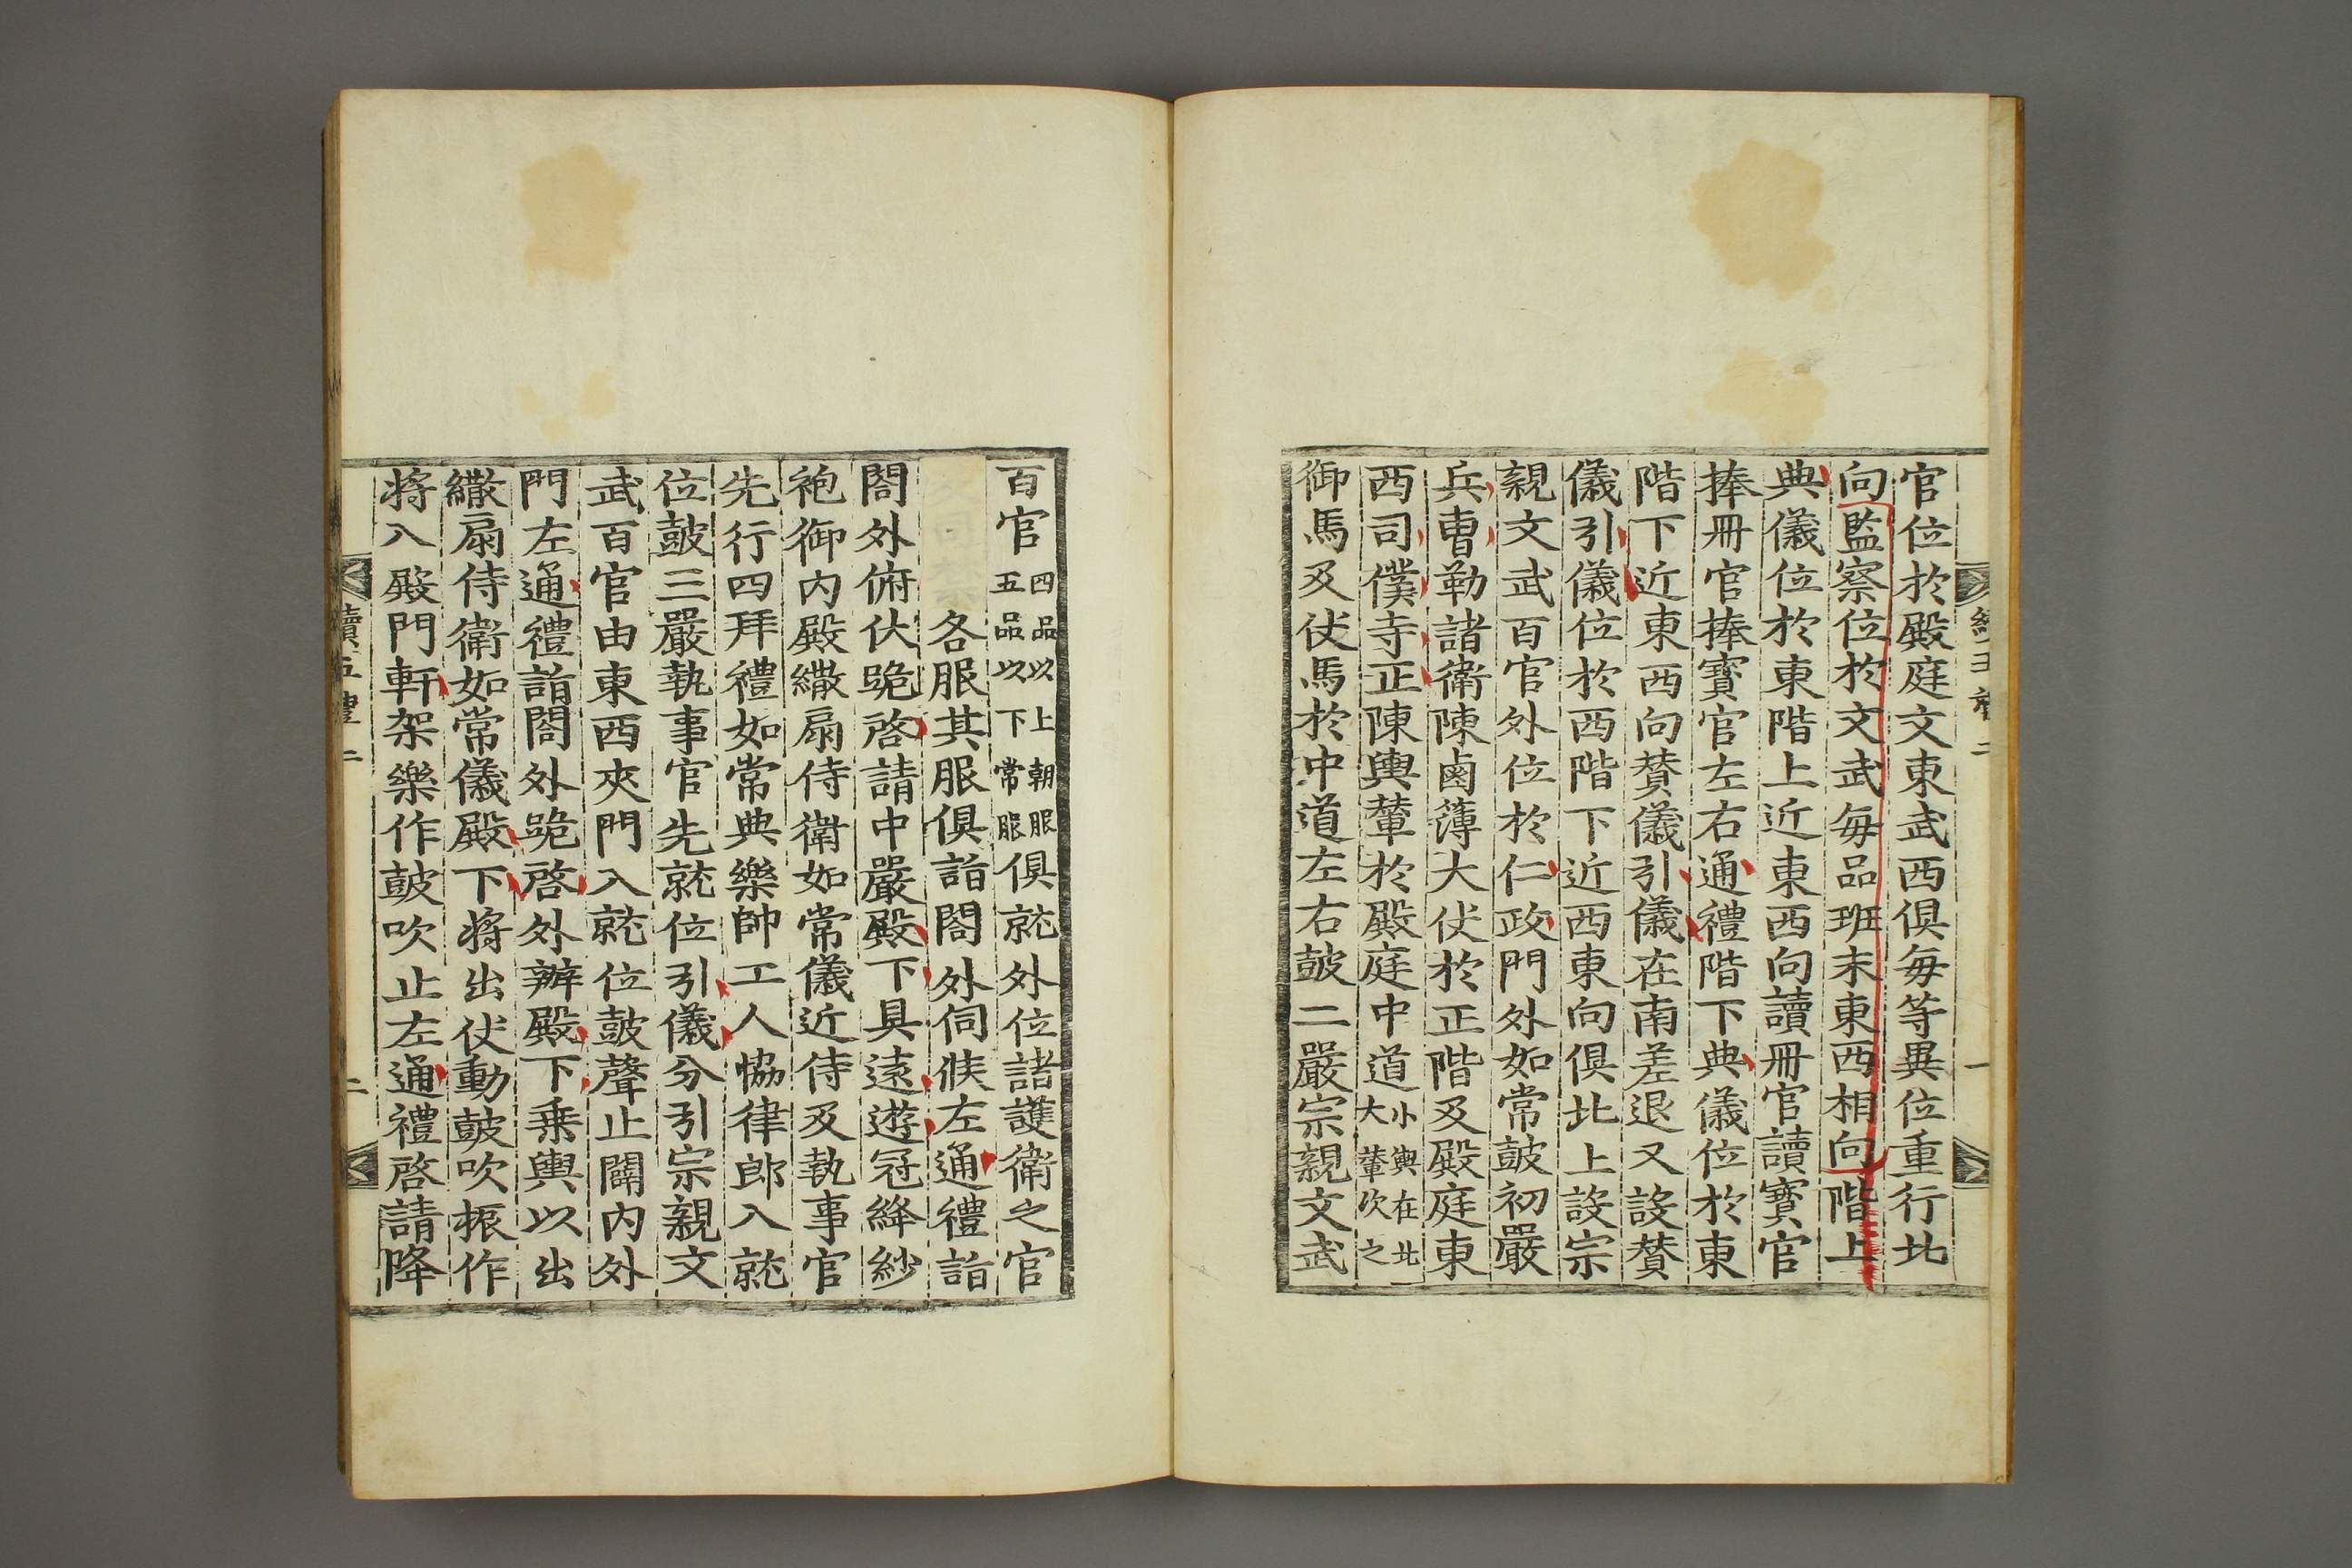 官位於殿庭文東武西俱每等異位重行北
向監察位於文武每品班末東西相向階上
典儀位於東階上近東西向讀冊官讀寶官
捧冊官捧寶官左右通禮階下典儀位於東
階下近東西向賛儀引儀在南差退又設賛
儀引儀位於西階下近西東向俱北上設宗
親文武百官外位於仁政門外如常鼓初嚴
兵曹勒諸衛陳鹵簿大仗於正階及殿庭東
西司僕寺正陳輿輦於殿庭中道小輿在北大輦次之
御馬及仗馬於中道左右鼓二嚴宗親文武
百官四品以上朝服五品以下常服俱就外位諸護衛之官
各服其服俱詣閤外伺候左通禮詣
閤外俯伏跪啓請中嚴殿下具遠遊冠絳紗
袍御內殿繖扇侍衛如常儀近侍及執事官
先行四拜禮如常典樂帥工人協律郎入就
位鼓三嚴執事官先就位引儀分引宗親文
武百官由東西夾門入就位鼓聲止闢內外
門左通禮詣閤外跪啓外辦殿下乗輿以出
繖扇侍衛如常儀殿下將出仗動鼓吹振作
將入殿門軒架樂作鼓吹止左通禮啓請降
續五禮二
二